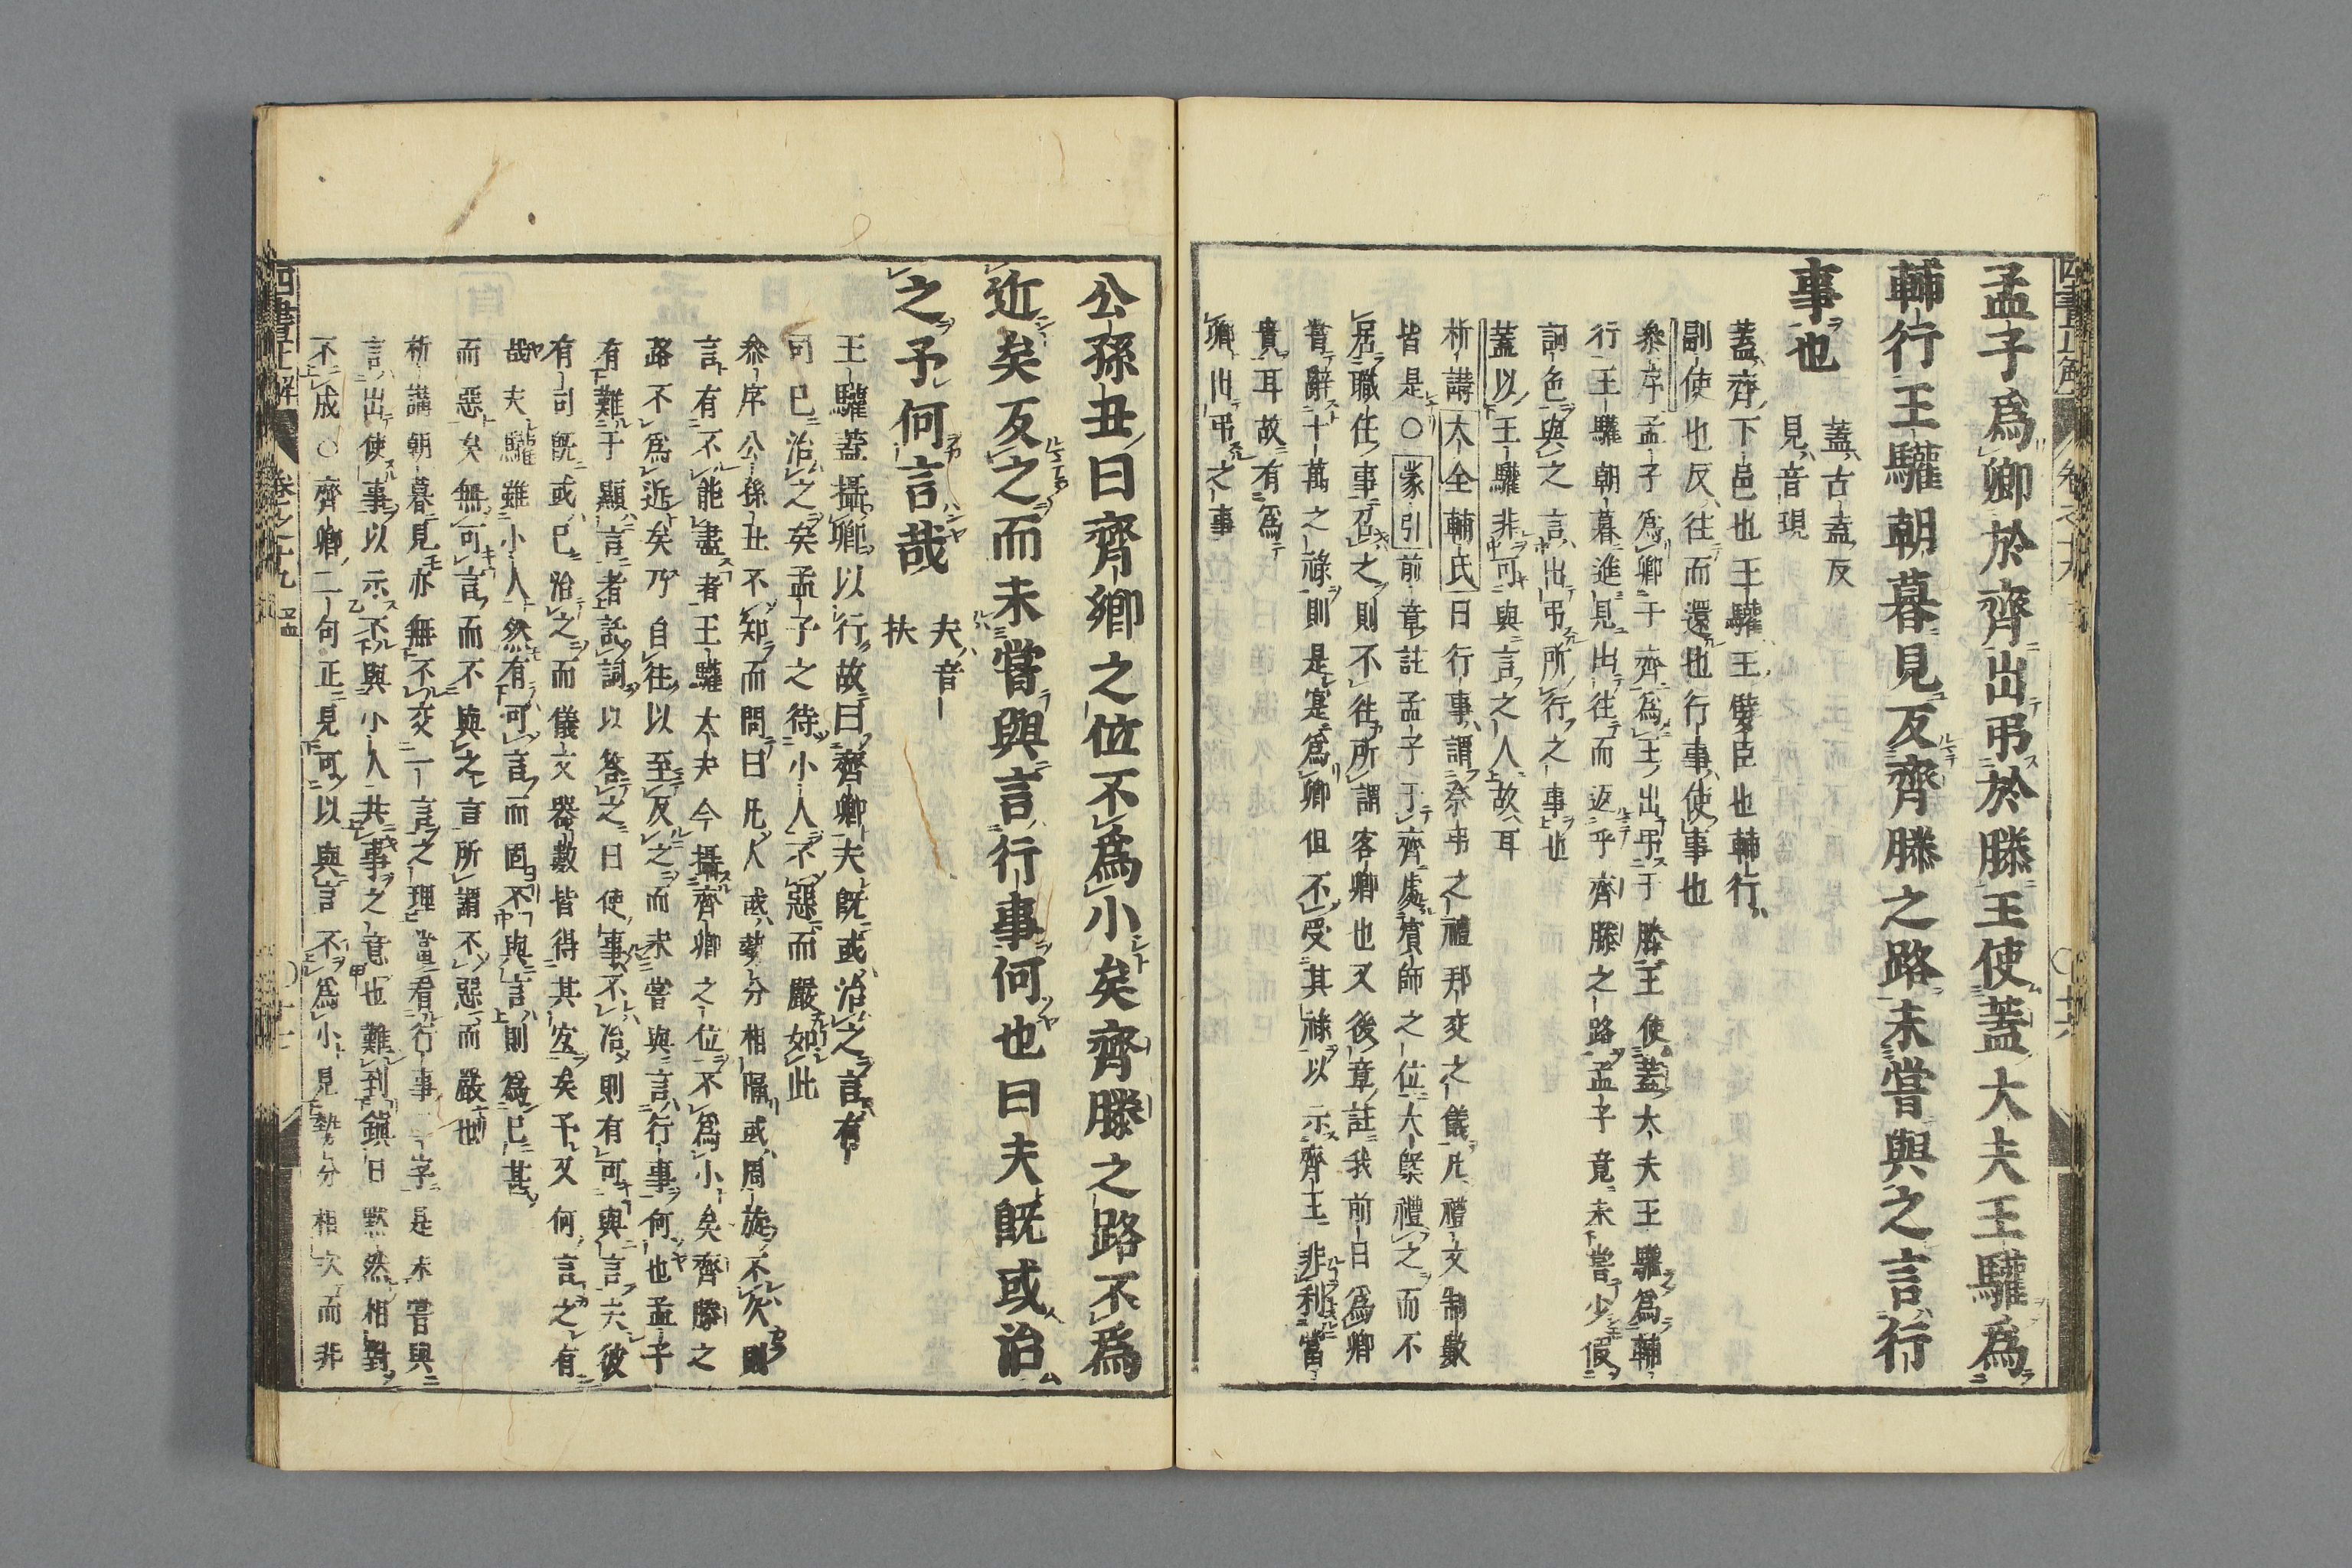 四書正解
卷之十九
孟子為卿於齊出弔於滕王使蓋大夫王驩為
輔行王驩朝暮見反齊滕之路未嘗與之言行
事也
蓋古盍反
見音現
蓋齊下邑也王驩王嬖臣也輔行
副使也反往而還也行事使事也
參序孟子為卿于齊為王出弔于滕王使蓋大夫王驩為輔
行王驩朝暮進見出往而返乎齊滕之路孟子竟未嘗少假
詞色與之言出弔所行之事也
蓋以王驩非可與言之人故耳
析講大全輔氏曰行事謂祭弔之禮邦交之儀凡禮文制數
皆是○蒙引前章註孟子于齊處賓師之位大槩禮之而不
居職任事召之則不往所謂客卿也又後章註我前日為卿
嘗辭十萬之祿則是寔為卿但不受其祿以示齊王非利當
貴耳故有為
卿出弔之事
公孫丑曰齊卿之位不為小矣齊滕之路不為
近矣反之而未嘗與言行事何也曰夫既或治
之予何言哉
夫音
扶
王驩蓋攝卿以行故曰齊卿夫既或治之言有
司已治之矣孟子之待小人不惡而嚴如此
參序公孫丑不知而問曰凡人或勢分相隔或周旋不久則
言有不能盡者王驩大夫今攝齊卿之位不為小矣齊滕之
路不為近矣乃自往以至反之而未嘗與言行事何也孟子
有難于顯言者託詞以答之曰使事不治則有可與言夫彼
有司既或已治之而儀文器數皆得其宜矣予又何言之有
哉夫驩雖小人然有可言而固不與言則為已甚
而惡矣無可言而不與之言所謂不惡而嚴也
析講朝暮見亦無不交一言之理當看行事二字是未嘗與
言出使事以示不與小人共事之意也難到鎮日默然相對
不成○齊卿二句正見可以與言不為小見勢分相次而非
四書正解
卷之十九
孟